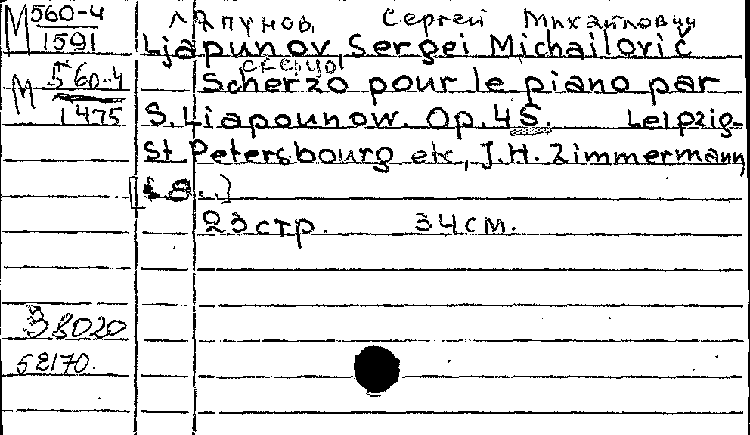 М 560-4
1591
Ляпунов, Сергей Михайлович
Ljapunov Sergei Michailovič
М 560-4
1475
Scherzo pour le piano par
S. Liapounow. Op. 45. Leipzig-
St Petersbourg etc, J.H. Zimmermann
23 стр. 34 см.
38020
52170.